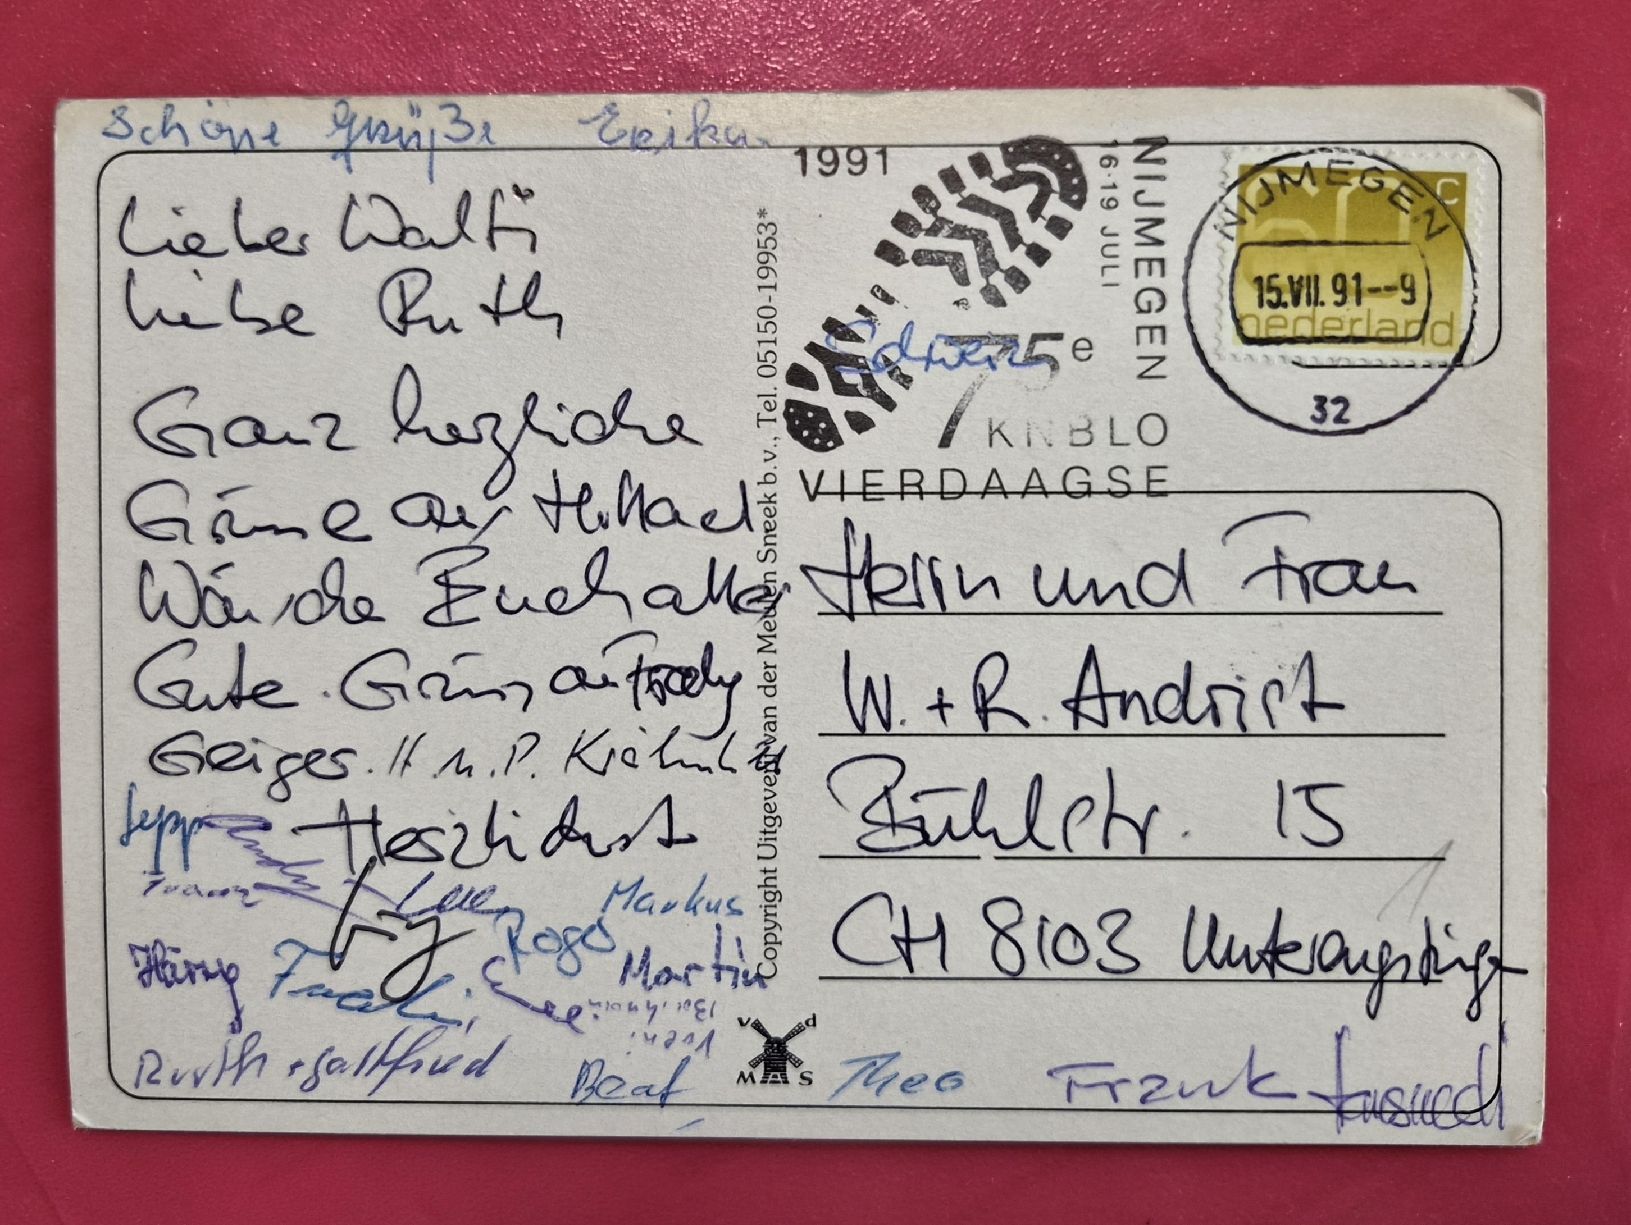 Schöne Grüße Erika
Lieber Walti
Liebe Ruth
Ganz herzliche
Grüsse aus Holland
Wünsche Euch alles
Gute. Grüsse an Fredy
Geiger. H. u. P.
Herzlichst
Sepp
Markus
Roger
Martin
Vreni
Ruth + Gottfried
Beat
Theo
Frank
Copyright Uitgeverij van der Meulen Sneek b.v., Tel. 05150-19953*
v d
M S
1991
16-19 JULI
NIJMEGEN NIJMEGEN
75e
KNBLO
VIERDAAGSE
Edwin
NIJMEGEN
15.VII.91--9
32
60 c
nederland
Herrn und Frau
W. + R. Andrist
Bühlstr. 15
CH 8103 Unterengstringen